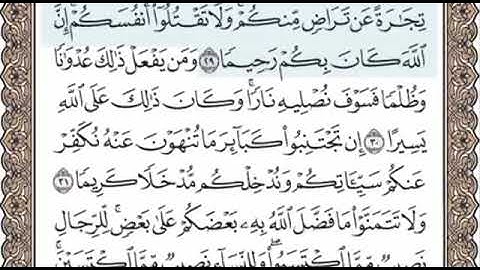 تِجَٰرَةً عَن تَرَاضٍ مِّنكُمْ ۚ وَلَا تَقْتُلُوٓا۟ أَنفُسَكُمْ ۚ إِنَّ
ٱللَّهَ كَانَ بِكُمْ رَحِيمًا ٢٩ وَمَن يَفْعَلْ ذَٰلِكَ عُدْوَٰنًا
وَظُلْمًا فَسَوْفَ نُصْلِيهِ نَارًا ۚ وَكَانَ ذَٰلِكَ عَلَى ٱللَّهِ
يَسِيرًا ٣٠ إِن تَجْتَنِبُوا۟ كَبَآئِرَ مَا تُنْهَوْنَ عَنْهُ نُكَفِّرْ
عَنكُمْ سَيِّـَٔاتِكُمْ وَنُدْخِلْكُم مُّدْخَلًا كَرِيمًا ٣١
وَلَا تَتَمَنَّوْا۟ مَا فَضَّلَ ٱللَّهُ بِهِۦ بَعْضَكُمْ عَلَىٰ بَعْضٍ ۚ لِّلرِّجَالِ
نَصِيبٌ مِّمَّا ٱكْتَسَبُوا۟ ۖ وَلِلنِّسَآءِ نَصِيبٌ مِّمَّا ٱكْتَسَبْنَ ۚ